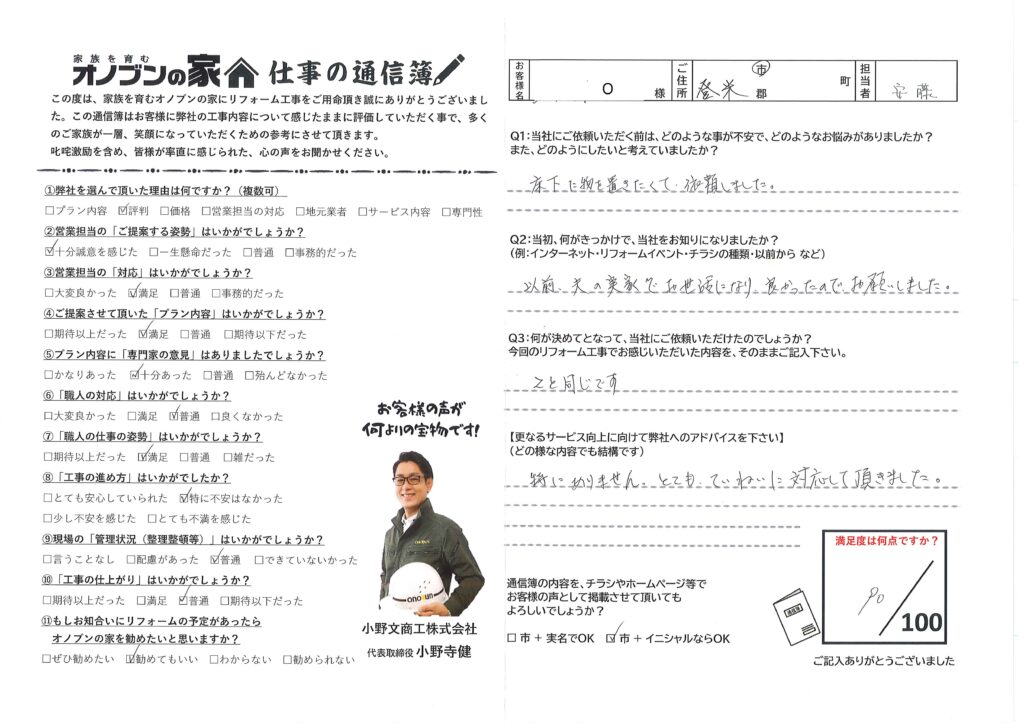 家族を育む
オノブンの家 仕事の通信簿
この度は、家族を育むオノブンの家にリフォーム工事をご用命頂き誠にありがとうございまし
た。この通信簿はお客様に弊社の工事内容について感じたままに評価していただく事で、多く
のご家族が一層、笑顔になっていただくための参考にさせて頂きます。
叱咤激励を含め、皆様が率直に感じられた、心の声をお聞かせください。
①弊社を選んで頂いた理由は何ですか？（複数可）
□プラン内容 ☑評判 □価格 □営業担当の対応 □地元業者 □サービス内容 □専門性
②営業担当の「ご提案する姿勢」はいかがでしょうか？
☑十分誠意を感じた □一生懸命だった □普通 □事務的だった
③営業担当の「対応」はいかがでしょうか？
□大変良かった ☑満足 □普通 □事務的だった
④ご提案させて頂いた「プラン内容」はいかがでしょうか？
□期待以上だった ☑満足 □普通 □期待以下だった
⑤プラン内容に「専門家の意見」はありましたでしょうか？
□かなりあった ☑十分あった □普通 □殆んどなかった
⑥「職人の対応」はいかがでしょうか？
□大変良かった □満足 ☑普通 □良くなかった
⑦「職人の仕事の姿勢」はいかがでしょうか？
□期待以上だった ☑満足 □普通 □雑だった
⑧「工事の進め方」はいかがでしたか？
□とても安心していられた ☑特に不安はなかった
□少し不安を感じた □とても不満を感じた
⑨現場の「管理状況（整理整頓等）」はいかがでしょうか？
□言うことなし □配慮があった ☑普通 □できていないかった
⑩「工事の仕上がり」はいかがでしょうか？
□期待以上だった □満足 ☑普通 □期待以下だった
⑪もしお知合いにリフォームの予定があったら
オノブンの家を勧めたいと思いますか？
□ぜひ勧めたい ☑勧めてもいい □わからない □勧められない
お客様の声が
何よりの宝物です!
onobun
小野文商工株式会社
代表取締役 小野寺健
お客様名 O 様 ご住所 登米 市 郡 町 担当者 安藤
Q1：当社にご依頼いただく前は、どのような事が不安で、どのようなお悩みがありましたか？
また、どのようにしたいと考えていましたか？
床下に物を置きたくて、依頼しました。
Q2：当初、何がきっかけで、当社をお知りになりましたか？
（例：インターネット・リフォームイベント・チラシの種類・以前から など）
以前、夫の実家でお世話になり、良かったので、お願いしました。
Q3：何が決めてとなって、当社にご依頼いただけたのでしょうか？
今回のリフォーム工事でお感じいただいた内容を、そのままご記入下さい。
2と同じです
【更なるサービス向上に向けて弊社へのアドバイスを下さい】
（どの様な内容でも結構です）
特にありません。とても、ていねいに対応して頂きました。
通信簿の内容を、チラシやホームページ等で
お客様の声として掲載させて頂いても
よろしいでしょうか？
□ 市 + 実名でOK ☑市 + イニシャルならOK
通信簿
満足度は何点ですか？
90/100
ご記入ありがとうございました